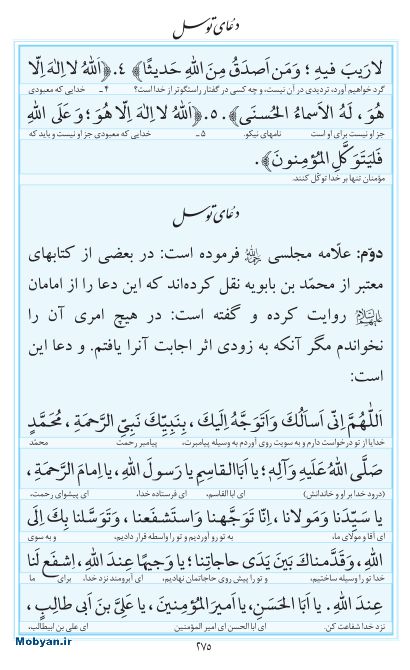 دعای توسل
لارَیبَ فیهِ ؛ وَمَن اَصدَقُ مِنَ اللهِ حَدیثًا﴾ ٤. ﴿اَللهُ لا اِلٰهَ اِلّا
گرد خواهیم آورد، تردیدی در آن نیست، و چه کسی در گفتار راستگوتر از خدا است؟ ۴ ـ خدایی که معبودی
هُوَ ، لَهُ الاَسماءُ الحُسنَی﴾. ٥. ﴿اَللهُ لا اِلٰهَ اِلّا هُوَ ؛ وَ عَلَی اللهِ
جز او نیست برای او است نامهای نیکو. ۵ ـ خدایی که معبودی جز او نیست و باید که
فَلیَتَوَکَّلِ المُؤمِنونَ﴾.
مؤمنان تنها بر خدا توکّل کنند.
دعای توسل
دوّم: علّامه مجلسی ﷲ فرموده است: در بعضی از کتابهای
معتبر از محمّد بن بابویه نقل کرده‌اند که این دعا را از امامان
علیهم‌السلام روایت کرده و گفته است: در هیچ امری آن را
نخواندم مگر آنکه به زودی اثر اجابت آنرا یافتم. و دعا این
است:
اَللّٰهُمَّ اِنّی اَسالُکَ وَاَتَوَجَّهُ اِلَیکَ ، بِنَبِیِّکَ نَبِیِّ الرَّحمَةِ ، مُحَمَّدٍ
خدایا از تو درخواست دارم و به سویت روی آوردم به وسیله پیامبرت، پیامبر رحمت محمّد
صَلَّی اللهُ عَلَیهِ وَآلِهِ ؛ یا اَبَاالقاسِمِ یا رَسولَ اللهِ ، یا اِمامَ الرَّحمَةِ ،
(درود خدا بر او و خاندانش) ای ابا القاسم، ای فرستاده خدا، ای پیشوای رحمت،
یا سَیِّدَنا وَمَولانا ، اِنّا تَوَجَّهنا وَاستَشفَعنا ، وَتَوَسَّلنا بِکَ اِلَی
ای آقا و مولای ما، به تو رو آوردیم و تو را واسطه قرار دادیم، و به سوی
اللهِ ، وَقَدَّمناکَ بَینَ یَدَی حاجاتِنا ؛ یا وَجیهًا عِندَ اللهِ ، اِشفَع لَنا
خدا تو را وسیله ساختیم، و تو را پیش روی حاجاتمان نهادیم، ای آبرومند نزد خدا، برای ما
عِندَ اللهِ . یا اَبَا الحَسَنِ ، یا اَمیرَ المُؤمِنینَ ، یا عَلِیَّ بنَ اَبی طالِبٍ ،
نزد خدا شفاعت کن. ای ابا الحسن ای امیر المؤمنین ای علی بن ابیطالب،
۲۷۵
Mobyan.ir